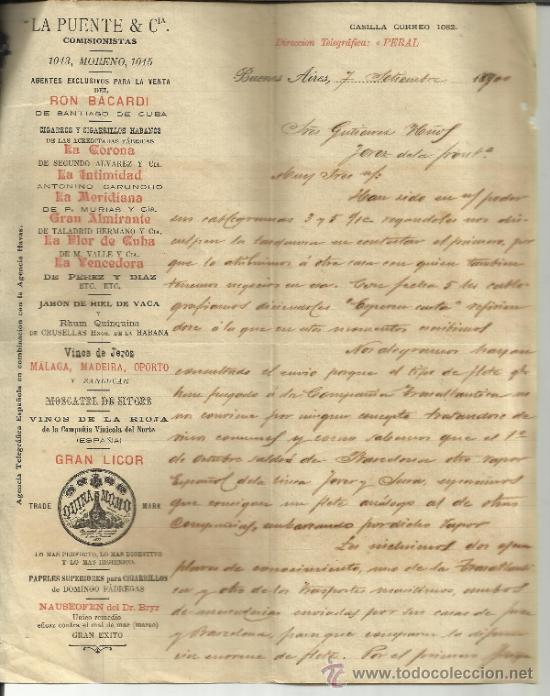 LA PUENTE & Cia.
COMISIONISTAS
1013, MORENO, 1015
AGENTES EXCLUSIVOS PARA LA VENTA
DEL
RON BACARDI
DE SANTIAGO DE CUBA
CIGARROS Y CIGARRILLOS HABANOS
DE LAS ACREDITADAS FÁBRICAS
La Corona
DE SEGUNDO ALVAREZ Y Cia.
La Intimidad
ANTONINO CARUNCHO
La Meridiana
DE P. MURIAS Y Cia.
Gran Almirante
DE TALADRID HERMANO Y Cia.
La Flor de Cuba
DE M. VALLE Y Cia.
La Vencedora
DE PEREZ Y DIAZ
ETC. ETC.
JABON DE HIEL DE VACA
Y
Rhum Quinquina
DE CRUSELLAS Hnos. DE LA HABANA
Vinos de Jerez
MÁLAGA, MADEIRA, OPORTO
Y SANLUCAR
MOSCATEL DE SITGES
VINOS DE LA RIOJA
de la Compañia Vinicola del Norte
(ESPAÑA)
GRAN LICOR
TRADE MARK
QUINA MOMO
LO MAS PERFECTO, LO MAS DIGESTIVO
Y LO MAS HIGIENICO.
PAPELES SUPERIORES para CIGARRILLOS
de DOMINGO FÁBREGAS
NAUSEOFEN del Dr. Bryr
Unico remedio
eficaz contra el mal de mar (mareo)
GRAN EXITO
Agencia Telegráfica Española en combinacion con la Agencia Havas.
CASILLA CORREO 1082.
Dirección Telegráfica: « PERAL
Buenos Aires, 7 Setiembre 1890
Sres Gutierrez Hños
Jerez de la front.ª
Muy Sres
Han sido en s/ poder
sus cablegramas 3 y 5 rogandoles nos dis-
culpen la tardanza en contestar el primero, por
que lo atribuimos á otra casa con quien tambien
tenemos negocios en esa. Con fecha 5 les cable-
grafiamos diciendoles "Esperen carta" refirien-
dose á la que en estos momentos escribimos
Nos alegramos hayan
consultado el envio porque el tipo de flete que
han pagado á la Compañia Trasatlantica no
nos conviene por ningun concepto tratandose de
vinos comunes y como sabemos que el 1º
de Octubre saldrá de Barcelona otro vapor
Español de la linea Jover y Serra, esperamos
que consigan un flete análogo al de otras
Compañias, embarcando por dicho vapor
Les incluimos dos ejem-
plares de conocimiento, uno de la Trasatlanti-
ca y otro de los Trasportes maritimos, ambos
de mercaderias enviadas por sus casas de Jerez
y Barcelona, para que comparen la diferen-
cia enorme de flete. Por el primero
todocoleccion.net